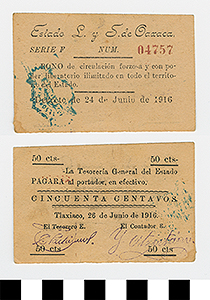 Estado L. y S. de Oaxaca.
SERIE F NUM. 04757
BONO de circulación forzosa y con po-
der liberatorio ilimitado en todo el territo-
rio del Estado.
Decreto de 24 de Junio de 1916
50 cts- 50 cts-
-La Tesorería General del Estado
PAGARA al portador, en efectivo.
CINCUENTA CENTAVOS.
Tlaxiaco, 26 de Junio de 1916.
El Tesorero E. El Contador E.
50 cts- 50 cts-